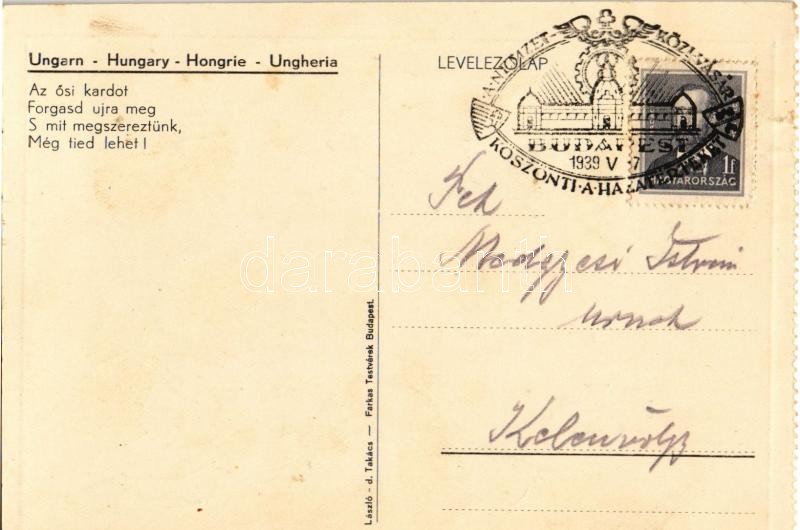 Ungarn - Hungary - Hongrie - Ungheria
Az ősi kardot
Forgasd ujra meg
S mit megszereztünk,
Még tied lehet !
LEVELEZŐLAP
A·NEMZETKÖZI·VÁSÁR
BUDAPEST
1939 V 7
KÖSZÖNTI·A·HAZATÉRTEKET
1f
MAGYARORSZÁG
István
urnak
Kelenvölgy
László - d. Takács — Farkas Testvérek Budapest.
darabanth